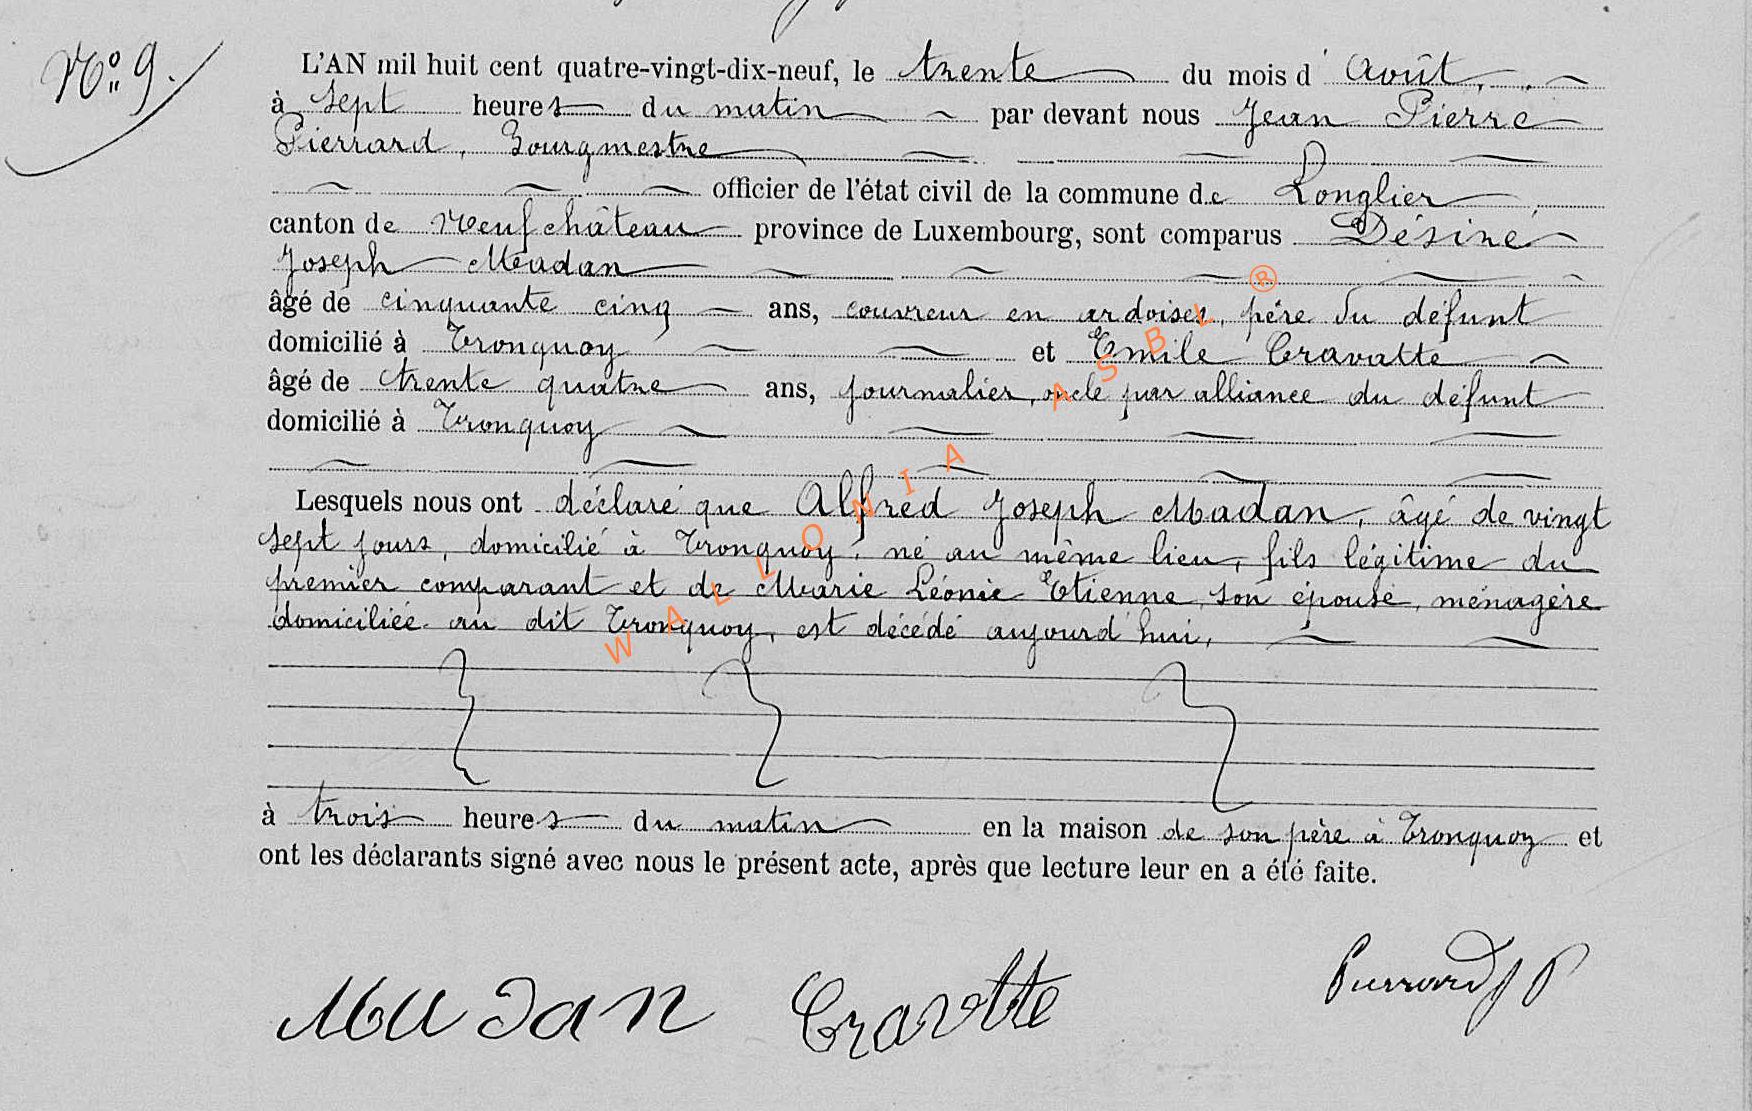 N° 9.
L'AN mil huit cent quatre-vingt-dix-neuf, le trente du mois d'Août,
à sept heures du matin par devant nous Jean Pierre
Pierrard, Bourgmestre
officier de l'état civil de la commune de Longlier,
canton de Neufchâteau province de Luxembourg, sont comparus Désiré
Joseph Madan
âgé de cinquante cinq ans, couvreur en ardoises, père du défunt
domicilié à Tronquoy et Emile Cravatte
âgé de trente quatre ans, journalier, oncle par alliance du défunt
domicilié à Tronquoy
Lesquels nous ont déclaré que Alfred Joseph Madan, âgé de vingt
sept jours, domicilié à Tronquoy, né au même lieu, fils légitime du
premier comparant et de Marie Léonie Etienne, son épouse, ménagère
domiciliée au dit Tronquoy, est décédé aujourd'hui,
à trois heures du matin en la maison de son père à Tronquoy et
ont les déclarants signé avec nous le présent acte, après que lecture leur en a été faite.
Madan Cravatte Pierrard JP
WALLONIA ASBL ®